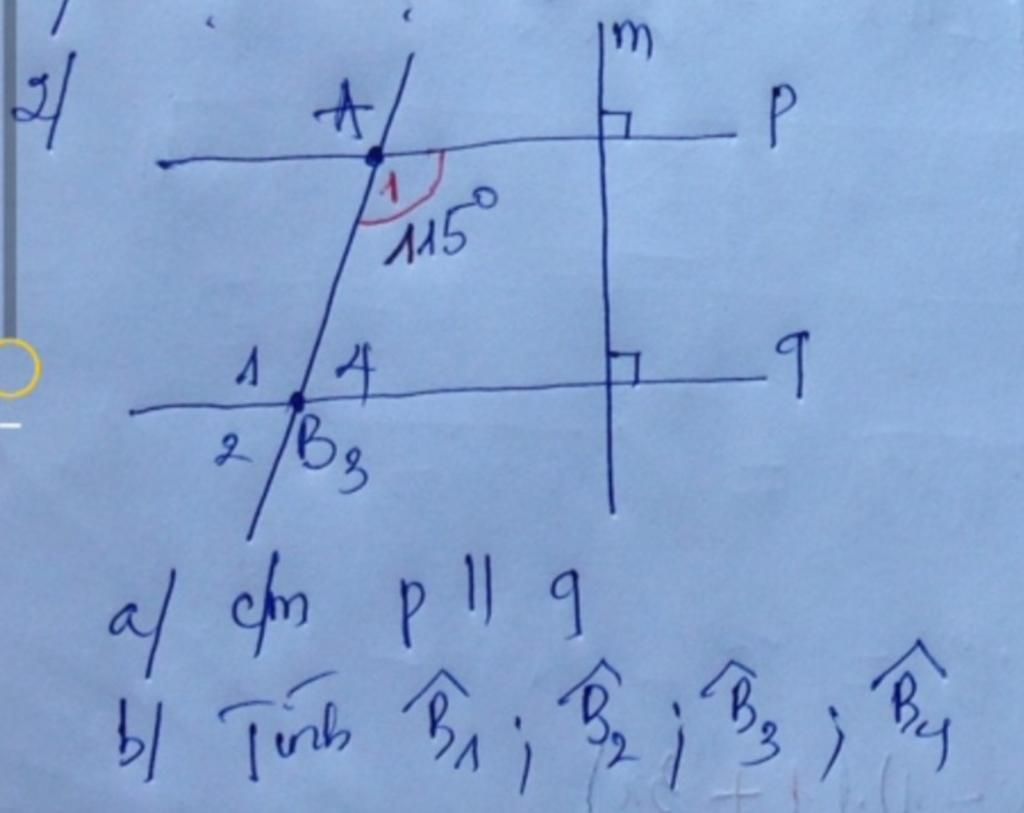 2/
m
A
p
1
115°
1 4
q
2 B 3
a/ c/m p || q
b/ Tính B̂₁ ; B̂₂ ; B̂₃ ; B̂₄